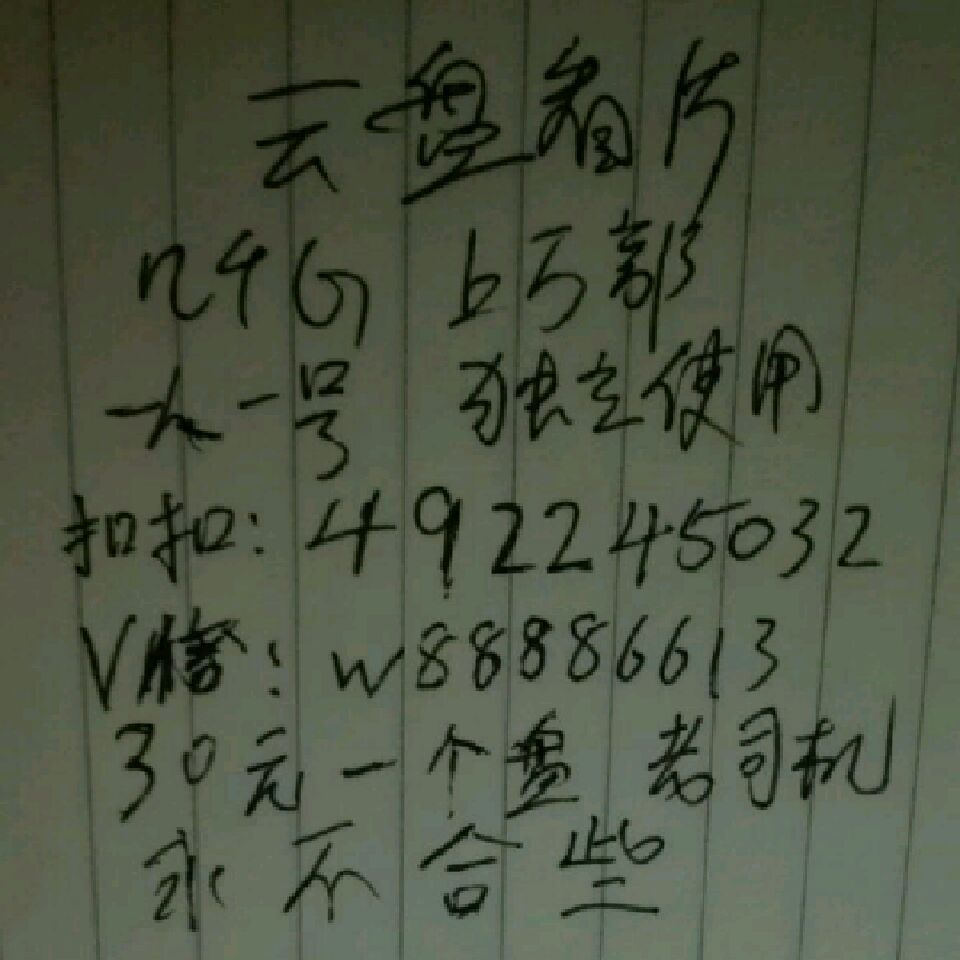 云盘看片
几千G 上万部
一人一号 独立使用
扣扣:492245032
V信:w88886613
30元一个盘 老司机
永不合些